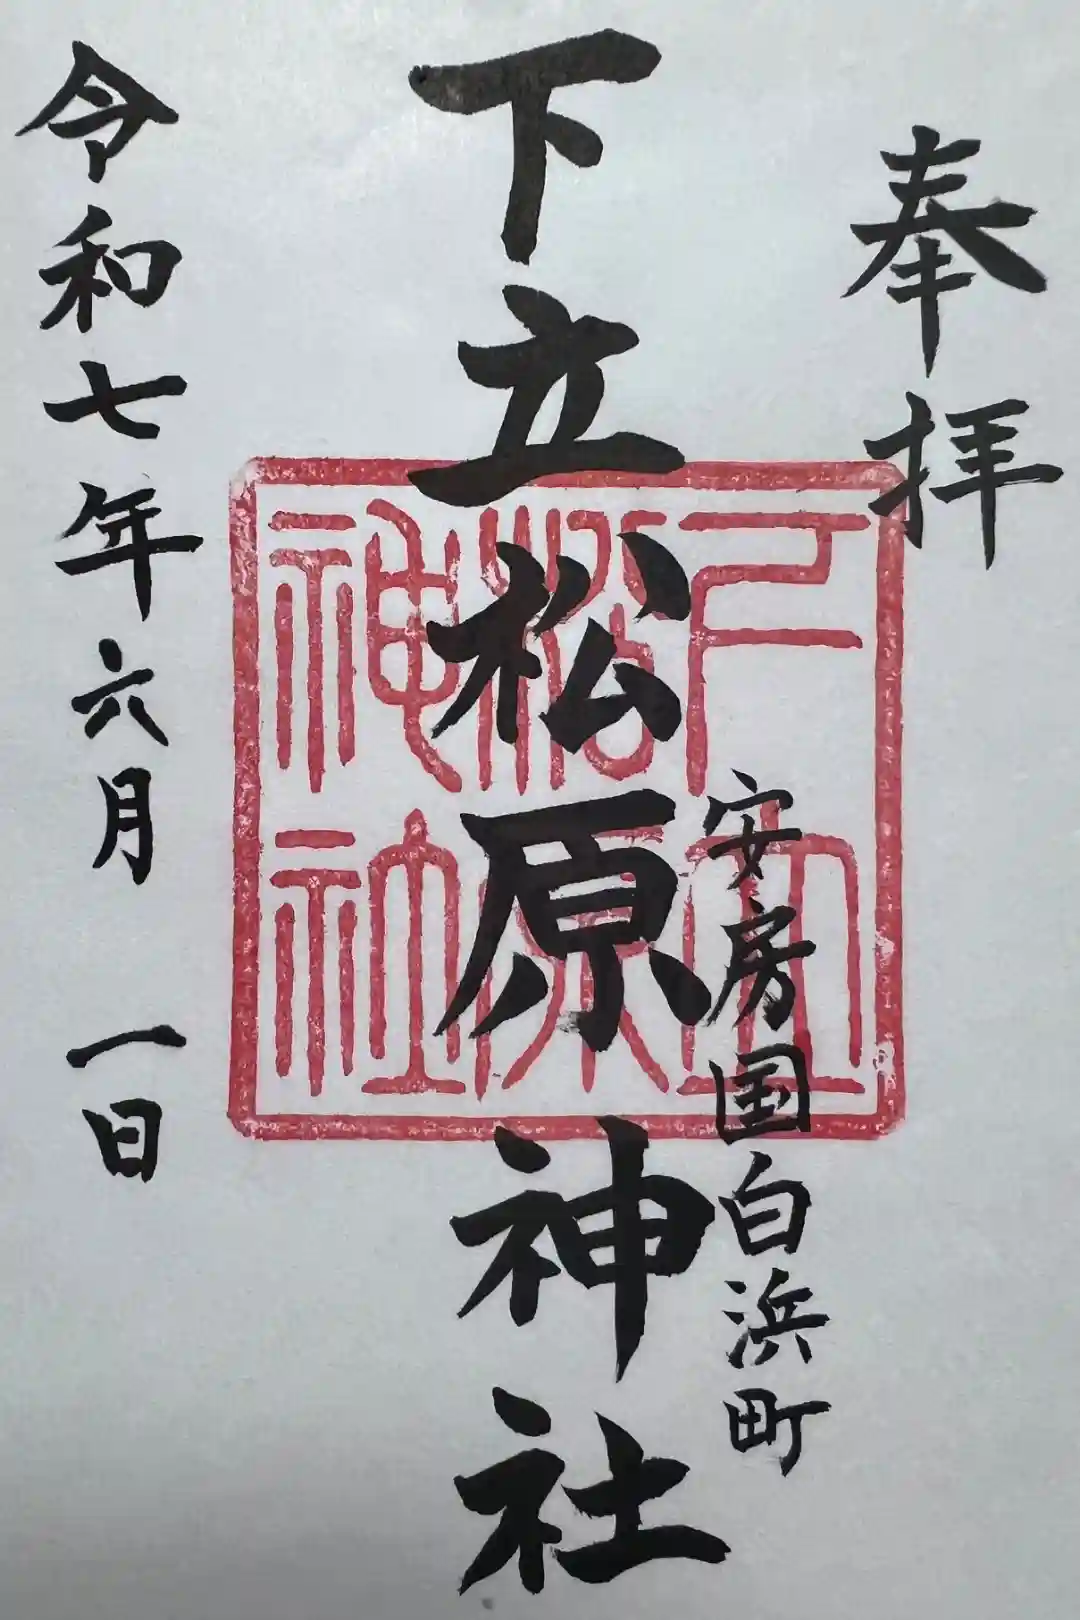 奉拝
安房国白浜町
下立松原神社
下立松原神社
令和七年六月 一日